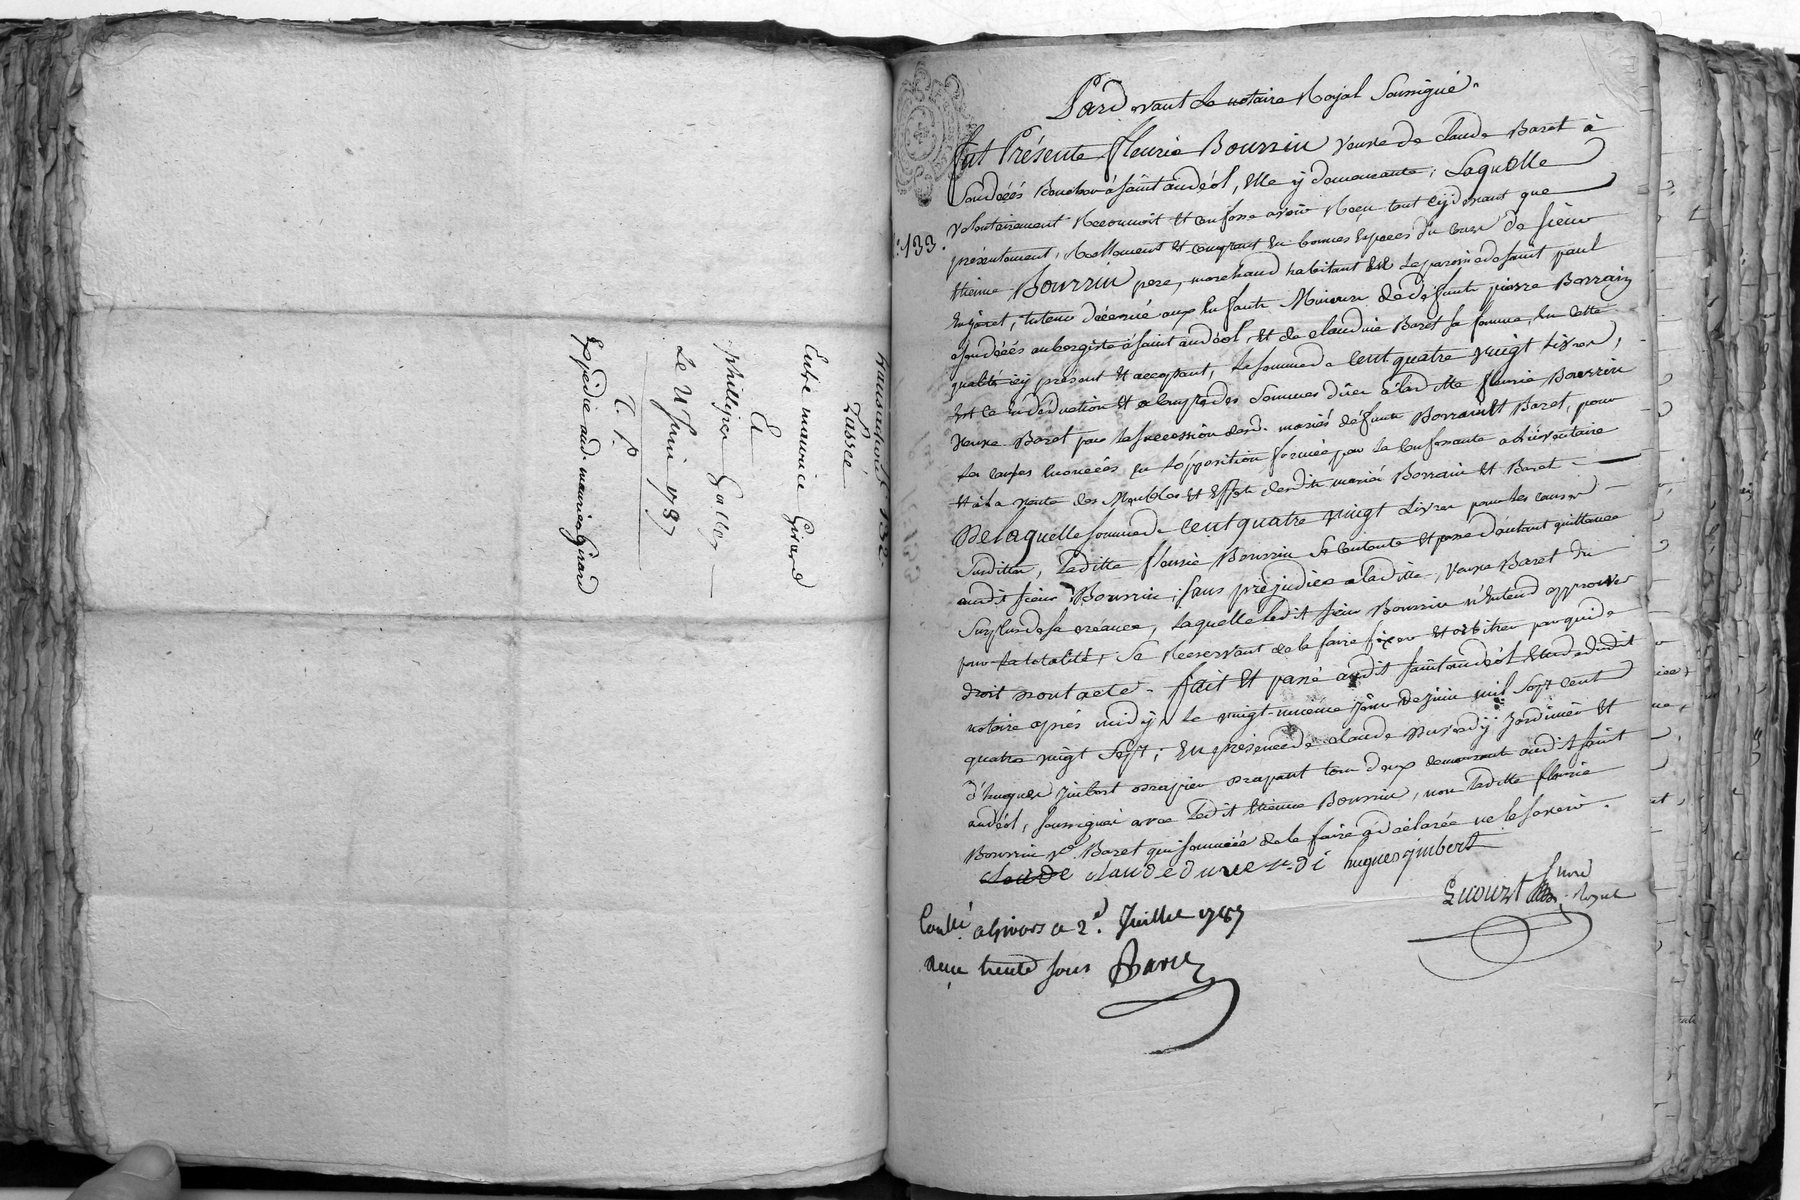 Transaction N.º 132.
Passée
Entre maurice Girard
Et
phillipe
Le 21 Juin 1787
C. P.
Expédié aud. maurice Girard
Pardevant Le notaire Royal Soussigné.
fut Présente fleurie Bourrin veuve de claude Baret à
son décés Boucher à saint andéol, elle y demeurante, Laquelle
volontairement Reconnoit et confesse avoir Reçu tout cydevant que
133.
présentement, Réellement et comptant en bonnes Especes du cours de sieur
Etienne Bourrin pere, marchand habitant en la paroisse de saint paul
en Jaret, tuteur décerné aux Enfants Mineurs de défunts pierre Borrain
a son décés aubergiste à saint andéol, et de claudine Baret sa femme, en cette
qualité icy présent et acceptant, La somme de Cent quatre vingt Livres,
Et ce en déduction et a compte des sommes dües à la ditte fleurie Bourrin
veuve Baret par la succession desd. mariés défunts Borrain et Baret, pour
les causes énoncées en l'opposition formée par la Confessante à l'inventaire
et à la vente des Meubles et Effets desdits mariés Borrain et Baret
De laquelle somme de Cent quatre vingt Livres pour les causes
susdittes, Laditte fleurie Bourrin se contente et passe d'autant quittance
audit sieur Bourrin, sans préjudice à laditte veuve Baret du
surplus de sa créance, laquelle ledit sieur Bourrin n'Entend approuver
pour la totalité, se Reservant de la faire fixer et arbitrer par qui de
droit dont acte. fait et passé audit saint andéol Etude dudit
notaire après midy le vingt-unieme Jour de Juin mil sept cent
quatre vingt sept, En présence de claude Duverdy Jardinier et
d'hugues Jimbert drappier drapant tous deux demeurants audit saint
andéol, soussignés avec Ledit Etienne Bourrin, non laditte fleurie
Bourrin ve. Baret qui sommée de le faire a déclarée ne le savoir.
claude duverdi hugues jimbert
not. Royal
Conllé a Givors ce 2.d Juillet 1787
Reçu trente sous